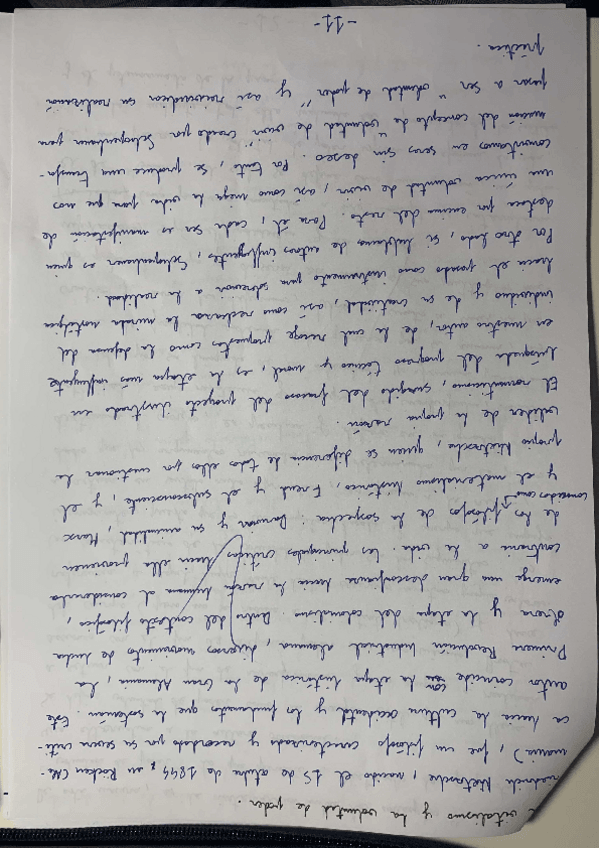 vitalismo y la voluntad de poder.
Friedrich Nietzsche, nacido el 15 de octubre de 1844, en Röcken (Ale-
mania), fue un filósofo caracterizado y recordado por su severa críti-
ca hacia la cultura occidental y los fundamentos que la sostenían. Este
autor coincide con la etapa histórica de la Gran Alemania, la
Primera Revolución Industrial alemana, diversos movimientos de lucha
obrera y la etapa del colonialismo. Dentro del contexto filosófico,
emerge una gran desconfianza hacia la razón humana al considerarla
contraria a la vida. Las principales críticas hacia ella provienen
de los filósofos de la sospecha: Darwin y su animalidad, Marx
conocidos como
y el materialismo histórico, Freud y el subconsciente, y el
propio Nietzsche, quien se diferencia de todos ellos por cuestionar la
validez de la propia razón.
El romanticismo, surgido del fracaso del proyecto ilustrado en
búsqueda del progreso técnico y moral, es la etapa más influyente
en nuestro autor, de la cual recoge propuestas como la defensa del
individuo y de su creatividad, así como rechaza la mirada nostálgica
hacia el pasado como instrumento para sobrevivir a la realidad.
Por otro lado, si hablamos de autores influyentes, Schopenhauer es quien
destaca por encima del resto. Para él, cada ser es manifestación de
una única voluntad de vivir, así como niega la vida para que nos
convirtamos en seres sin deseo. Por tanto, se produce una transfor-
mación del concepto de "voluntad de vivir" creado por Schopenhauer para
pasar a ser "voluntad de poder" y así reivindicar su realización
práctica.
-11-